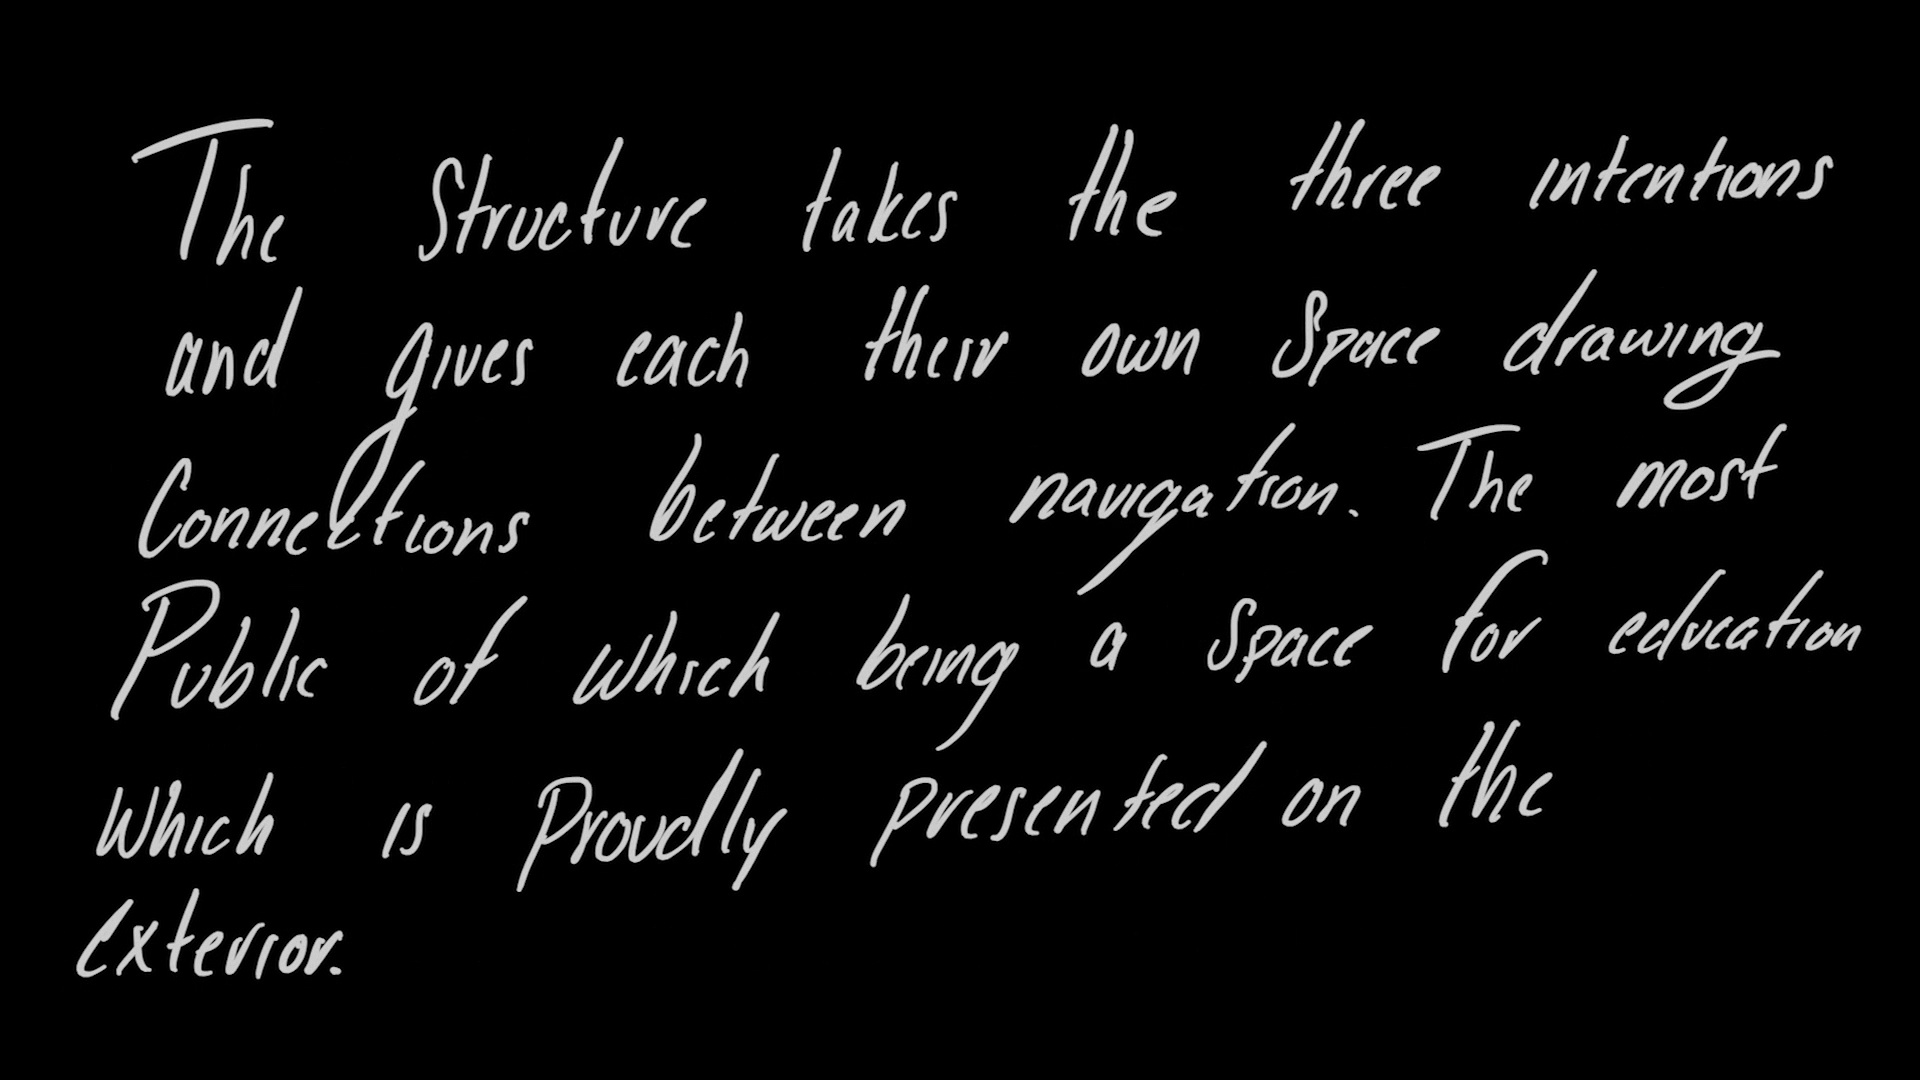 The Structure takes the three intentions
and gives each their own Space drawing
Connections between navigation. The most
Public of which being a Space for education
which is Proudly presented on the
exterior.